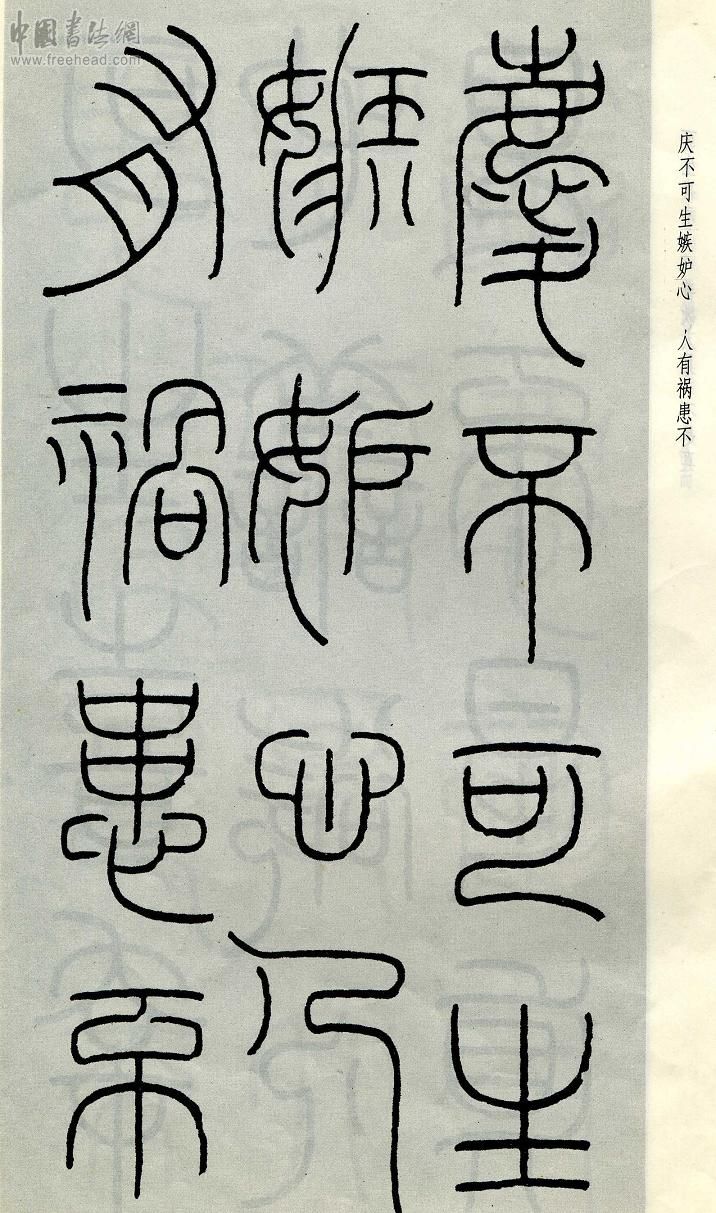 中國书法網
www.freehead.com
庆不可生嫉妒心 人有祸患不
慶不可生
嫉妒心人
有禍患不